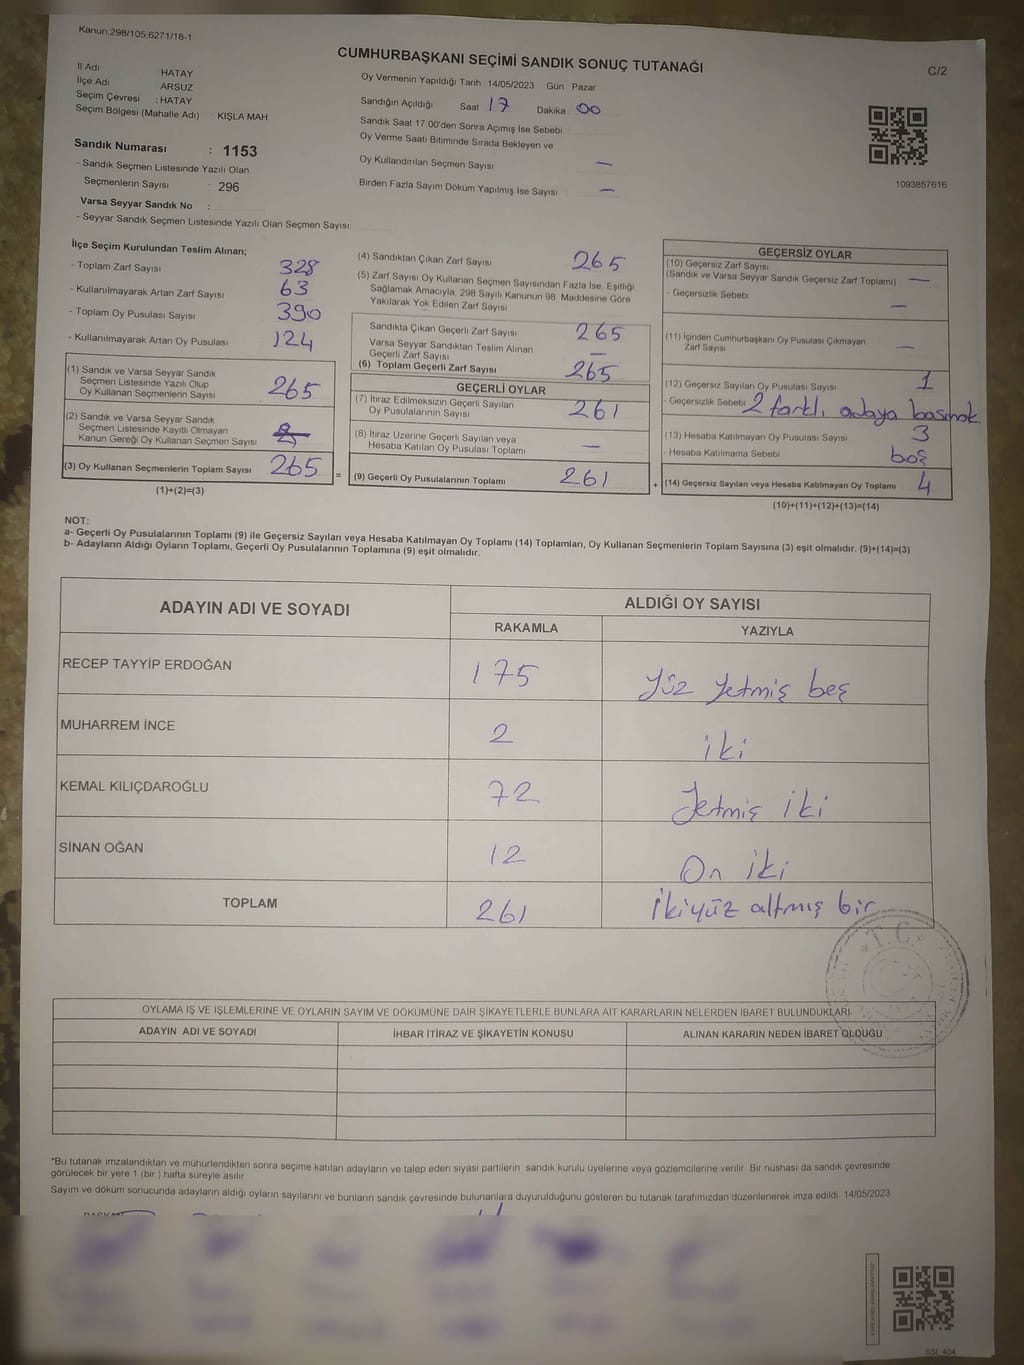 Kanun;298/105;6271/18-1
CUMHURBAŞKANI SEÇİMİ SANDIK SONUÇ TUTANAĞI
C/2
İl Adı HATAY
İlçe Adı ARSUZ
Seçim Çevresi : HATAY
Seçim Bölgesi (Mahalle Adı) : KIŞLA MAH
Oy Vermenin Yapıldığı Tarih 14/05/2023 Gün Pazar
Sandığın Açıldığı Saat 17 Dakika 00
Sandık Saat 17:00'den Sonra Açımış İse Sebebi
Oy Verme Saati Bitiminde Sırada Bekleyen ve
Oy Kullandırılan Seçmen Sayısı —
Birden Fazla Sayım Döküm Yapılmış İse Sayısı —
1093857616
Sandık Numarası : 1153
- Sandık Seçmen Listesinde Yazılı Olan
Seçmenlerin Sayısı : 296
Varsa Seyyar Sandık No :
- Seyyar Sandık Seçmen Listesinde Yazılı Olan Seçmen Sayısı:
İlçe Seçim Kurulundan Teslim Alınan;
- Toplam Zarf Sayısı 328
- Kullanılmayarak Artan Zarf Sayısı 63
- Toplam Oy Pusulası Sayısı 390
- Kullanılmayarak Artan Oy Pusulası 124
(1) Sandık ve Varsa Seyyar Sandık
Seçmen Listesinde Yazılı Olup
Oy Kullanan Seçmenlerin Sayısı 265
(2) Sandık ve Varsa Seyyar Sandık
Seçmen Listesinde Kayıtlı Olmayan
Kanun Gereği Oy Kullanan Seçmen Sayısı
(3) Oy Kullanan Seçmenlerin Toplam Sayısı 265 =
(1)+(2)=(3)
(4) Sandıktan Çıkan Zarf Sayısı 265
(5) Zarf Sayısı Oy Kullanan Seçmen Sayısından Fazla İse, Eşitliği
Sağlamak Amacıyla, 298 Sayılı Kanunun 98. Maddesine Göre
Yakılarak Yok Edilen Zarf Sayısı
Sandıkta Çıkan Geçerli Zarf Sayısı 265
Varsa Seyyar Sandıktan Teslim Alınan
Geçerli Zarf Sayısı —
(6) Toplam Geçerli Zarf Sayısı 265
GEÇERLİ OYLAR
(7) İtiraz Edilmeksizin Geçerli Sayılan
Oy Pusulalarının Sayısı 261
(8) İtiraz Üzerine Geçerli Sayılan veya
Hesaba Katılan Oy Pusulası Toplamı —
(9) Geçerli Oy Pusulalarının Toplamı 261 +
GEÇERSİZ OYLAR
(10) Geçersiz Zarf Sayısı
(Sandık ve Varsa Seyyar Sandık Geçersiz Zarf Toplamı) —
- Geçersizlik Sebebi —
(11) İçinden Cumhurbaşkanı Oy Pusulası Çıkmayan
Zarf Sayısı —
(12) Geçersiz Sayılan Oy Pusulası Sayısı 1
- Geçersizlik Sebebi 2 farklı adaya basmak
(13) Hesaba Katılmayan Oy Pusulası Sayısı 3
- Hesaba Katılmama Sebebi boş
(14) Geçersiz Sayılan veya Hesaba Katılmayan Oy Toplamı 4
(10)+(11)+(12)+(13)=(14)
NOT:
a- Geçerli Oy Pusulalarının Toplamı (9) ile Geçersiz Sayılan veya Hesaba Katılmayan Oy Toplamı (14) Toplamları, Oy Kullanan Seçmenlerin Toplam Sayısına (3) eşit olmalıdır. (9)+(14)=(3)
b- Adayların Aldığı Oyların Toplamı, Geçerli Oy Pusulalarının Toplamına (9) eşit olmalıdır.
ADAYIN ADI VE SOYADI
ALDIĞI OY SAYISI
RAKAMLA YAZIYLA
RECEP TAYYİP ERDOĞAN 175 Yüz Yetmiş beş
MUHARREM İNCE 2 iki
KEMAL KILIÇDAROĞLU 72 Yetmiş iki
SİNAN OĞAN 12 On iki
TOPLAM 261 İkiyüz altmış bir
T.C.
OYLAMA İŞ VE İŞLEMLERİNE VE OYLARIN SAYIM VE DÖKÜMÜNE DAİR ŞİKAYETLERLE BUNLARA AİT KARARLARIN NELERDEN İBARET BULUNDUKLARI
ADAYIN ADI VE SOYADI İHBAR İTİRAZ VE ŞİKAYETİN KONUSU ALINAN KARARIN NEDEN İBARET OLDUĞU
*Bu tutanak imzalandıktan ve mühürlendikten sonra seçime katılan adayların ve talep eden siyasi partilerin sandık kurulu üyelerine veya gözlemcilerine verilir. Bir nüshası da sandık çevresinde
görülecek bir yere 1 (bir) hafta süreyle asılır
Sayım ve döküm sonucunda adayların aldığı oyların sayılarını ve bunların sandık çevresinde bulunanlara duyurulduğunu gösteren bu tutanak tarafımızdan düzenlenerek imza edildi. 14/05/2023
SSI_404